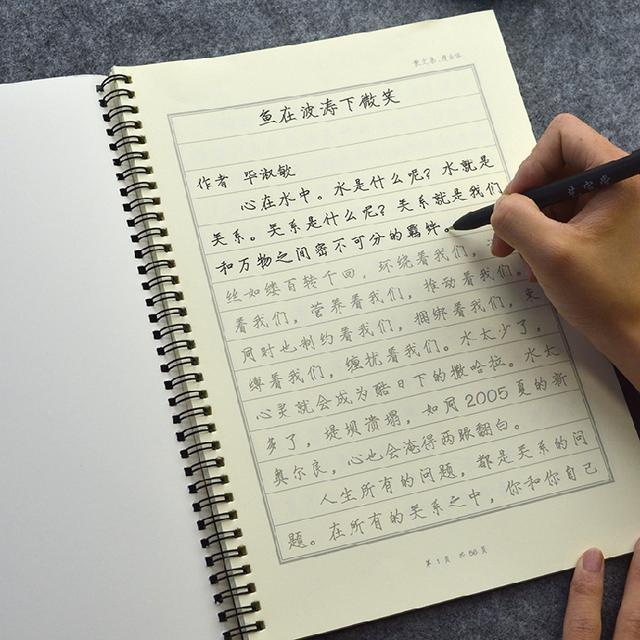 鱼在波涛下微笑
作者 毕淑敏
心在水中。水是什么呢？水就是
关系。关系是什么呢？关系就是我们
和万物之间密不可分的羁绊。
丝如缕百转千回，环绕着我们，
着我们，营养着我们，推动着我们，
同时也制约着我们，捆绑着我们，
缚着我们，缠扰着我们。水太少了，
心灵就会成为酷日下的撒哈拉。水太
多了，堤坝溃塌，如同2005夏的新
奥尔良，心也会淹得两眼翻白。
人生所有的问题，都是关系的问
题。在所有的关系之中，你和你自己
第1页 共56页